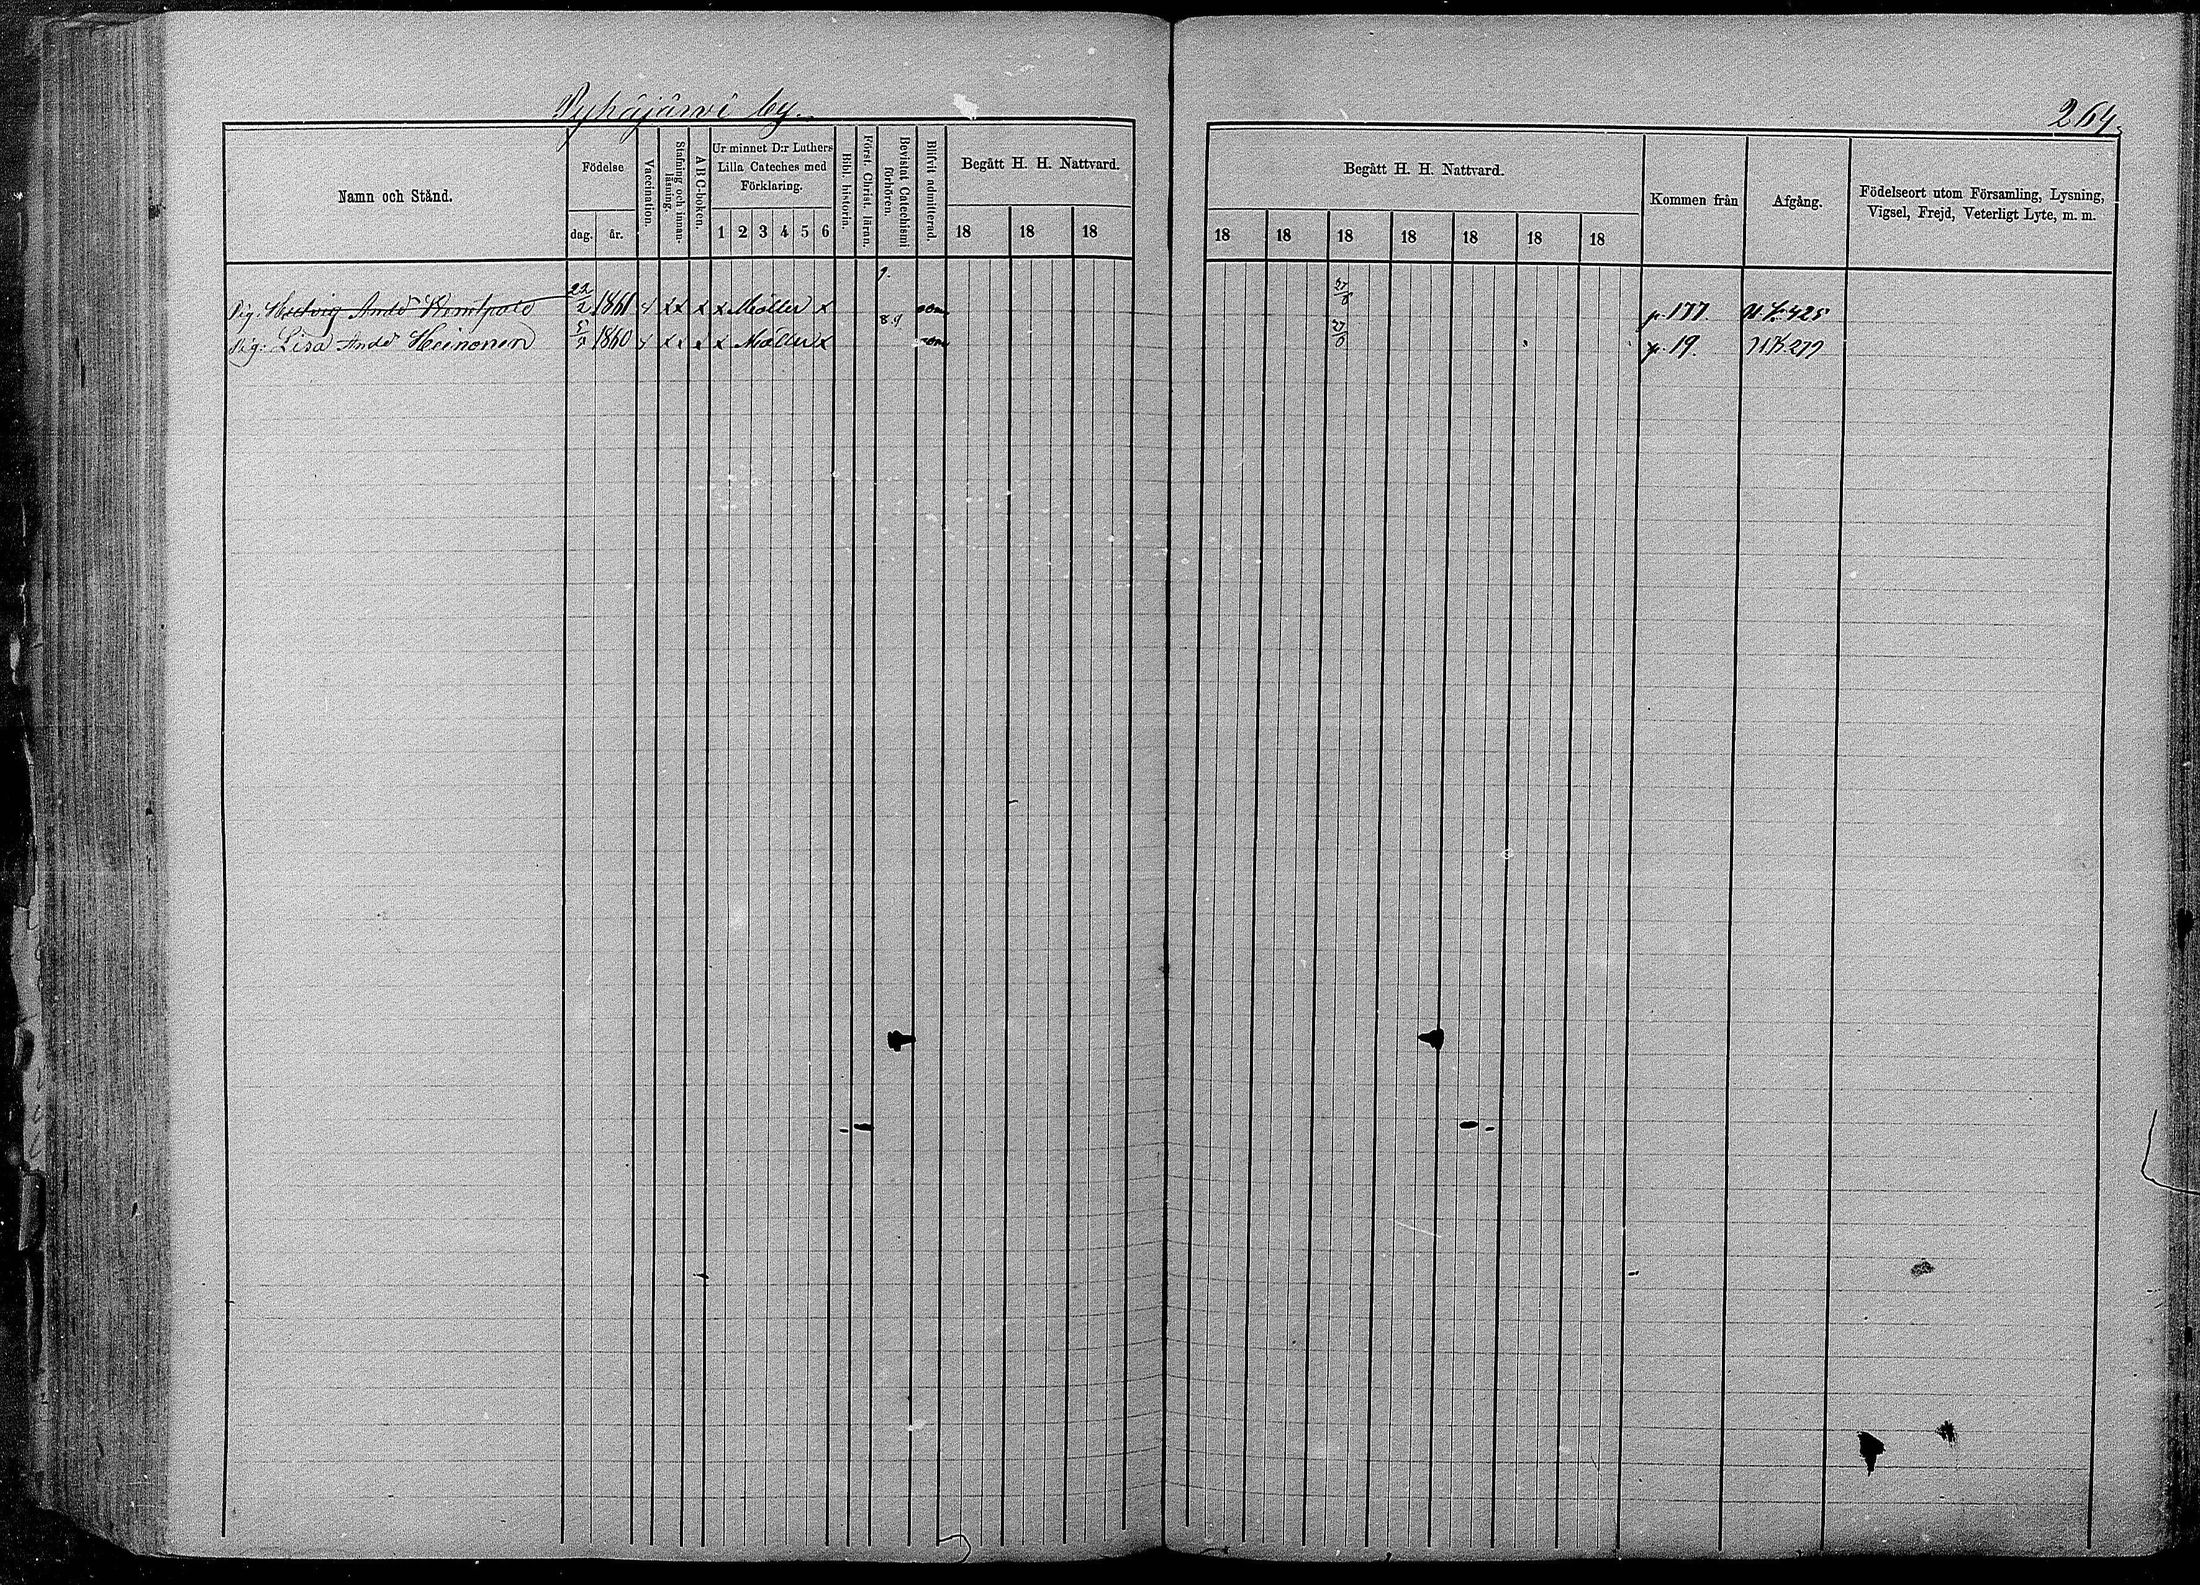 Pyhäjärvi by.
264.
Namn och Stånd.
Födelse
dag. år.
Vaccination.
Stafning och innanläsning.
A B C-boken.
Ur minnet D:r Luthers Lilla Cateches med Förklaring.
1 2 3 4 5 6
Bibl. historia.
Först. Christ. läran.
Bevistat Catechismi förhören.
Blifvit admitterad.
Begått H. H. Nattvard.
18 18 18
Begått H. H. Nattvard.
18 18 18 18 18 18 18
Kommen från
Afgång.
Födelseort utom Församling, Lysning, Vigsel, Frejd, Veterligt Lyte, m. m.
Pig. Hedvig And:dr 22/2 1861 x x x x Möller x 9. 27/8 p. 177. N.K. 425
Pig. Lisa And:dr Heinonen 1860 x x x x Möller x 8.9 27/8 p. 19. N.K. 277